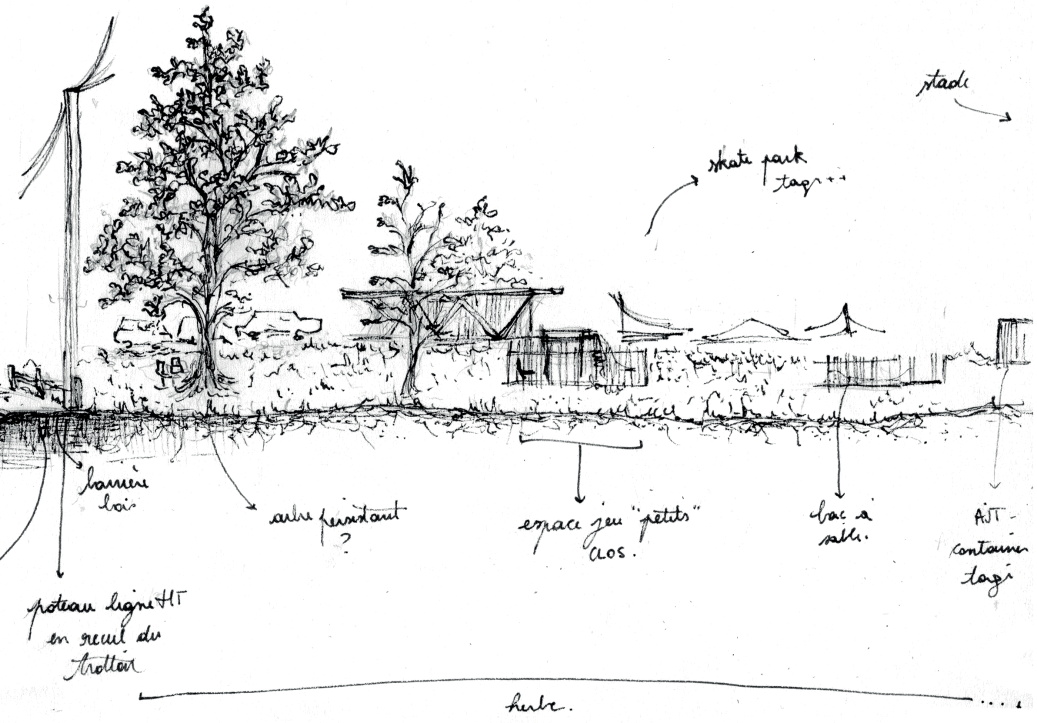 stade
skate park
tags++
barrière
bois
arbre persistant
?
espace jeu "petits"
CLOS.
bac à
sable.
AJT -
container
tags
poteau ligne HT
en recul du
trottoir
herbe.